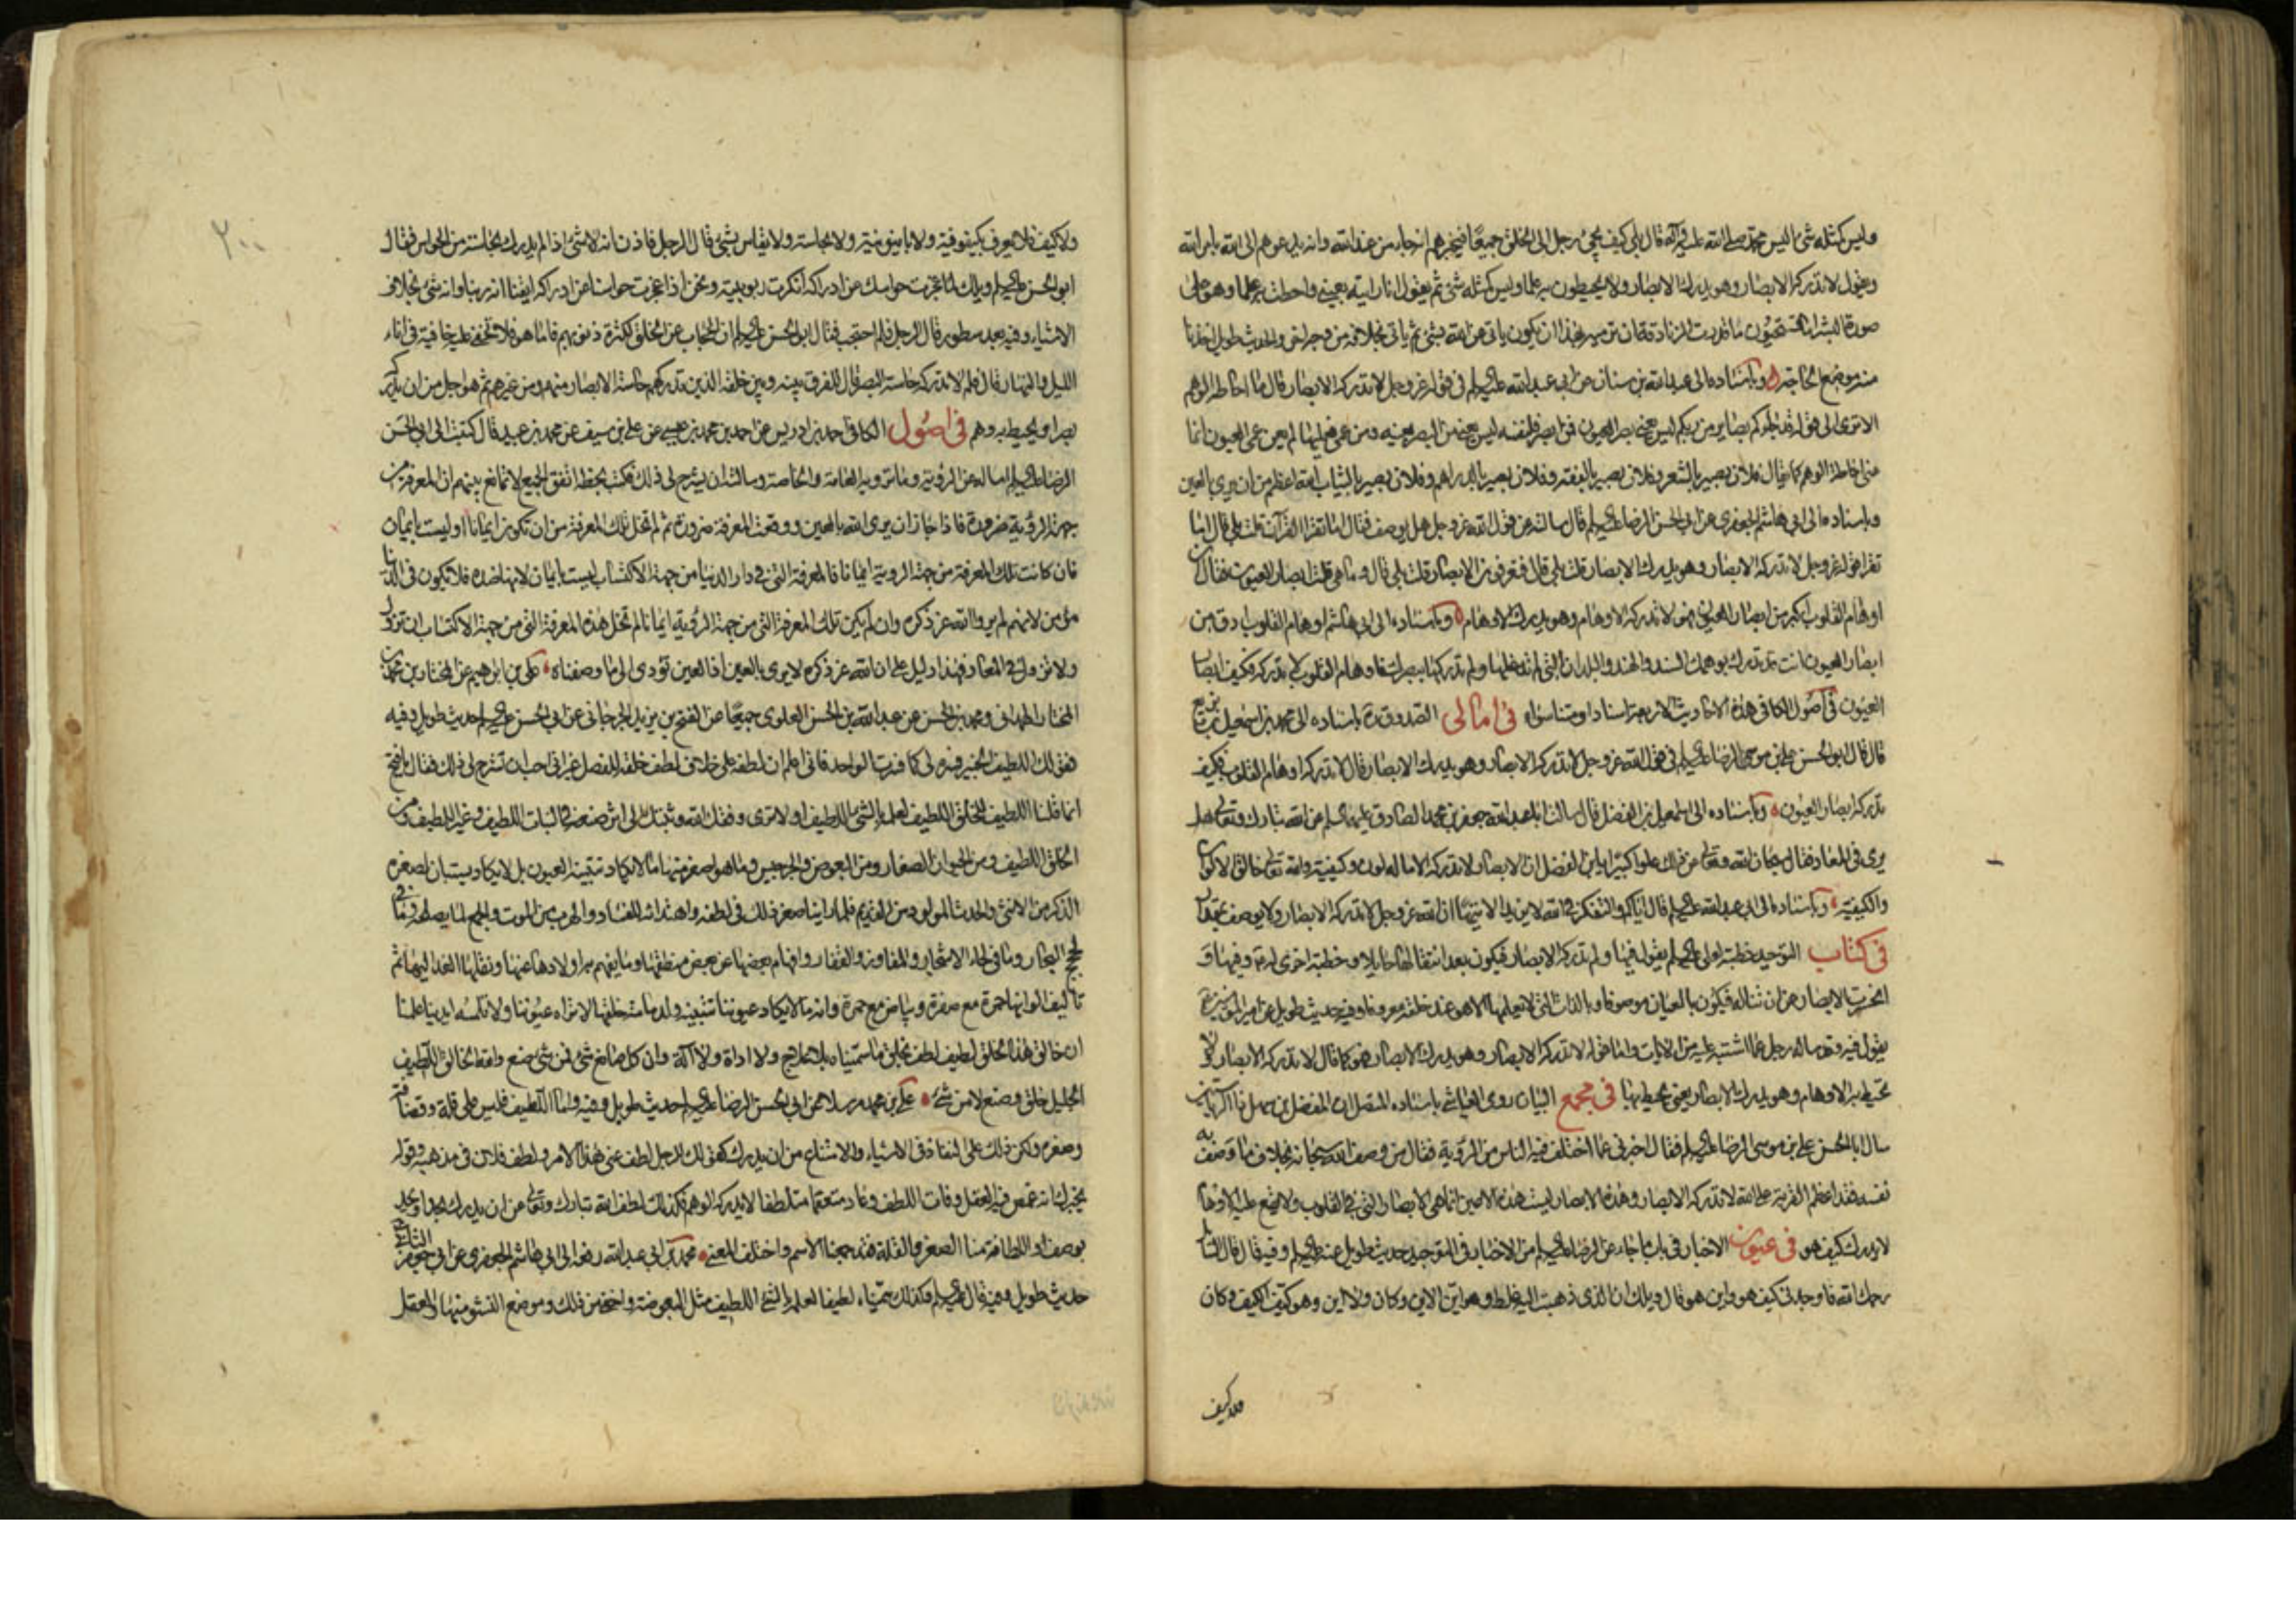 وليس كمثله شئ اليس محمد صلى الله عليه وآله قال بلى كيف يجئ رجل الى الخلق جميعا فيخبرهم انه جاء من عند الله وانه يدعوهم الى الله بامر الله
ويقول لا تدركه الابصار وهو يدرك الابصار ولا يحيطون به علما وليس كمثله شئ ثم يقول انا رايته بعينى واحطت به علما وهو على
صورة البشر اما تستحيون ما قدرت الزنادقة ان ترميه بهذا ان يكون ياتى عن الله بشئ ثم ياتى بخلافه من وجه اخر والحديث طويل اخذنا
منه موضع الحاجة وباسناده الى عبد الله بن سنان عن ابى عبد الله عليه السلم فى قوله عز وجل لا تدركه الابصار قال احاطة الوهم
الا ترى الى قوله قد جاءكم بصاير من ربكم ليس يعنى بصر العيون فمن ابصر فلنفسه ليس يعنى من البصر بعينه ومن عمى فعليها لم يعن عمى العيون انما
عنى احاطة الوهم كما يقال فلان بصير بالشعر وفلان بصير بالفقه وفلان بصير بالدراهم وفلان بصير بالثياب الله اعظم من ان يرى بالعين
وباسناده الى ابى هاشم الجعفرى عن ابى الحسن الرضا عليه السلم قال سالته عن قول الله عز وجل هل يوصف فقال اما تقرا القرآن قلت بلى قال اما
تقرا قوله عز وجل لا تدركه الابصار وهو يدرك الابصار قلت بلى قال فتعرفون الابصار قلت بلى قال وما هى قلت ابصار العيون فقال ان
اوهام القلوب اكبر من ابصار العيون فهو لا تدركه الاوهام وهو يدرك الاوهام وباسناده الى ابى هاشم اوهام القلوب ادق من
ابصار العيون انت قد تدرك بوهمك السند والهند والبلدان التى لم تدخلها ولم تدركها ببصرك فاوهام القلوب لا تدركه فكيف ابصار
العيون فى اصول الكافى هذه الاحاديث الاربعة اسنادا ومتنا سواء فى امالى الصدوق ره باسناده الى محمد بن اسمعيل بن بزيع
قال قال ابو الحسن على بن موسى الرضا عليه السلم فى قول الله عز وجل لا تدركه الابصار وهو يدرك الابصار قال لا تدركه اوهام القلوب فكيف
تدركه ابصار العيون وباسناده الى اسمعيل بن الفضل قال سالت ابا عبد الله جعفر بن محمد الصادق عليهما السلم عن الله تبارك وتعالى هل
يرى فى المعاد فقال سبحان الله وتعالى عن ذلك علوا كبيرا يا بن الفضل ان الابصار لا تدركه الا ما له لون وكيفية والله تعالى خالق الالوان
والكيفية وباسناده الى ابى عبد الله عليه السلم قال اياكم والتفكر فى الله لا يزيد الا تيها ان الله عز وجل لا تدركه الابصار ولا يوصف بمقدار
فى كتاب التوحيد خطبة لعلى عليه السلم يقول فيها ولم تدركه الابصار فيكون بعد انتقالها حايلا وخطبة اخرى له ع وفيها و
انحسرت الابصار عن ان تناله فيكون بالعيان موصوفا وبالذات التى لا يعلمها الا هو عند خلقه معروفا وفيه حديث طويل عن امير المؤمنين ع
يقول فيه وقد ساله رجل عما اشتبه عليه من الايات واما قوله لا تدركه الابصار وهو يدرك الابصار فهو كما قال لا تدركه الابصار لا
تحيط به الاوهام وهو يدرك الابصار يعنى يحيط بها فى مجمع البيان روى العياشى باسناده المتصل ان الفضل بن سهل ذا الرياستين
سال ابا الحسن على بن موسى الرضا عليه السلم فقال اخبرنى عما اختلف فيه الناس من الرؤية فقال من وصف الله سبحانه بخلاف ما وصف به
نفسه فقد اعظم الفرية على الله لا تدركه الابصار وهذه الابصار ليست هذه الاعين انما هى الابصار التى فى القلوب ولا يقع عليه الاوهام
لا يدرك كيف هو فى عيون الاخبار فى باب ما جاء عن الرضا عليه السلم من الاخبار فى التوحيد حديث طويل عنه عليه السلم وفيه قال قال السائل
رحمك الله فاوجدنى كيف هو واين هو قال ويلك ان الذى ذهبت اليه غلط وهو اين الاين وكان ولا اين وهو كيف الكيف وكان
ولا كيف
ولا كيف فلا يعرف بكيفوفية ولا باينونية ولا بحاسة ولا يقاس بشئ قال الرجل فاذن انه لا شئ اذا لم يدرك بحاسة من الحواس فقال
ابو الحسن عليه السلم ويلك لما عجزت حواسك عن ادراكه انكرت ربوبيته ونحن اذا عجزت حواسنا عن ادراكه ايقنا انه ربنا وانه شئ بخلاف
الاشياء وفيه بعد سطور قال الرجل فلم احتجب فقال ابو الحسن عليه السلم ان الحجاب عن الخلق لكثرة ذنوبهم فاما هو فلا تخفى عليه خافية فى اناء
الليل والنهار قال فلم لا تدركه حاسة البصر قال للفرق بينه وبين خلقه الذين تدركهم حاسة الابصار منهم ومن غيرهم ثم هو اجل من ان يدركه
بصر او يحيط به وهم فى اصول الكافى احمد بن ادريس عن احمد بن محمد بن عيسى عن على بن سيف عن محمد بن عبيد قال كتبت الى ابى الحسن
الرضا عليه السلم اساله عن الرؤية وما ترويه العامة والخاصة وسالته ان يشرح لى ذلك فكتب بخطه اتفق الجميع لا تمانع بينهم ان المعرفة من
جهة الرؤية ضرورة فاذا جاز ان يرى الله بالعين ووقعت المعرفة ضرورة ثم لم تخل تلك المعرفة من ان تكون ايمانا او ليست بايمان
فان كانت تلك المعرفة من جهة الرؤية ايمانا فالمعرفة التى فى دار الدنيا من جهة الاكتساب ليست بايمان لانها ضده فلا يكون فى الدنيا
مؤمن لانهم لم يروا الله عز ذكره وان لم يكن تلك المعرفة التى من جهة الرؤية ايمانا لم تخل هذه المعرفة التى من جهة الاكتساب ان تزول
ولا تزول فى المعاد فهذا دليل على ان الله عز ذكره لا يرى بالعين اذ العين تؤدى الى ما وصفناه على بن ابراهيم عن المختار بن محمد بن
المختار الهمدانى ومحمد بن الحسن عن عبد الله بن الحسن العلوى جميعا عن الفتح بن يزيد الجرجانى عن ابى الحسن عليه السلم حديث طويل وفيه
فقولك اللطيف الخبير فسره لى كما فسرت الواحد فانى اعلم ان لطفه على خلاف لطف خلقه للفصل غير انى احب ان تشرح لى ذلك فقال يا فتح
انما قلنا اللطيف للخلق اللطيف لعلمه بالشئ اللطيف او لا ترى وفقك الله وثبتك الى اثر صنعه فى النبات اللطيف وغير اللطيف ومن
الخلق اللطيف ومن الحيوان الصغار ومن البعوض والجرجس وما هو اصغر منها ما لا يكاد تبينه العيون بل لا يكاد يستبان لصغره
الذكر من الانثى والحدث المولود من القديم فلما راينا صغر ذلك فى لطفه واهتدائه للسفاد والهرب من الموت والجمع لما يصلحه وما فى
لجج البحار وما فى لحاء الاشجار والمفاوز والقفار وافهام بعضها عن بعض منطقها وما يفهم به اولادها عنها ونقلها الغذاء اليها ثم
تاليف الوانها حمرة مع صفرة وبياض مع حمرة وانه ما لا يكاد عيوننا تستبينه لدمامة خلقها لا تراه عيوننا ولا تلمسه ايدينا علمنا
ان خالق هذا الخلق لطيف لطف بخلق ما سميناه بلا علاج ولا اداة ولا آلة وان كل صانع شئ فمن شئ صنع والله الخالق اللطيف
الجليل خلق وصنع لا من شئ على بن محمد مرسلا عن ابى الحسن الرضا عليه السلم حديث طويل وفيه واما اللطيف فليس على قلة وقضافة
وصغر ولكن ذلك على النفاذ فى الاشياء والامتناع من ان يدرك كقولك للرجل لطف عنى هذا الامر ولطف فلان فى مذهبه وقوله
يخبرك انه غمض فيه العقل وفات الطلب وعاد متعمقا متلطفا لا يدركه الوهم فكذلك لطف الله تبارك وتعالى عن ان يدرك بحد او يحد
بوصف واللطافة منا الصغر والقلة فقد جمعنا الاسم واختلف المعنى محمد بن ابى عبد الله رفعه الى ابى هاشم الجعفرى عن ابى جعفر الثانى ع
حديث طويل وفيه قال عليه السلم وكذلك سميناه لطيفا لعلمه بالشئ اللطيف مثل البعوضة واخفى من ذلك وموضع النشو منها والعقل
٢٠٠